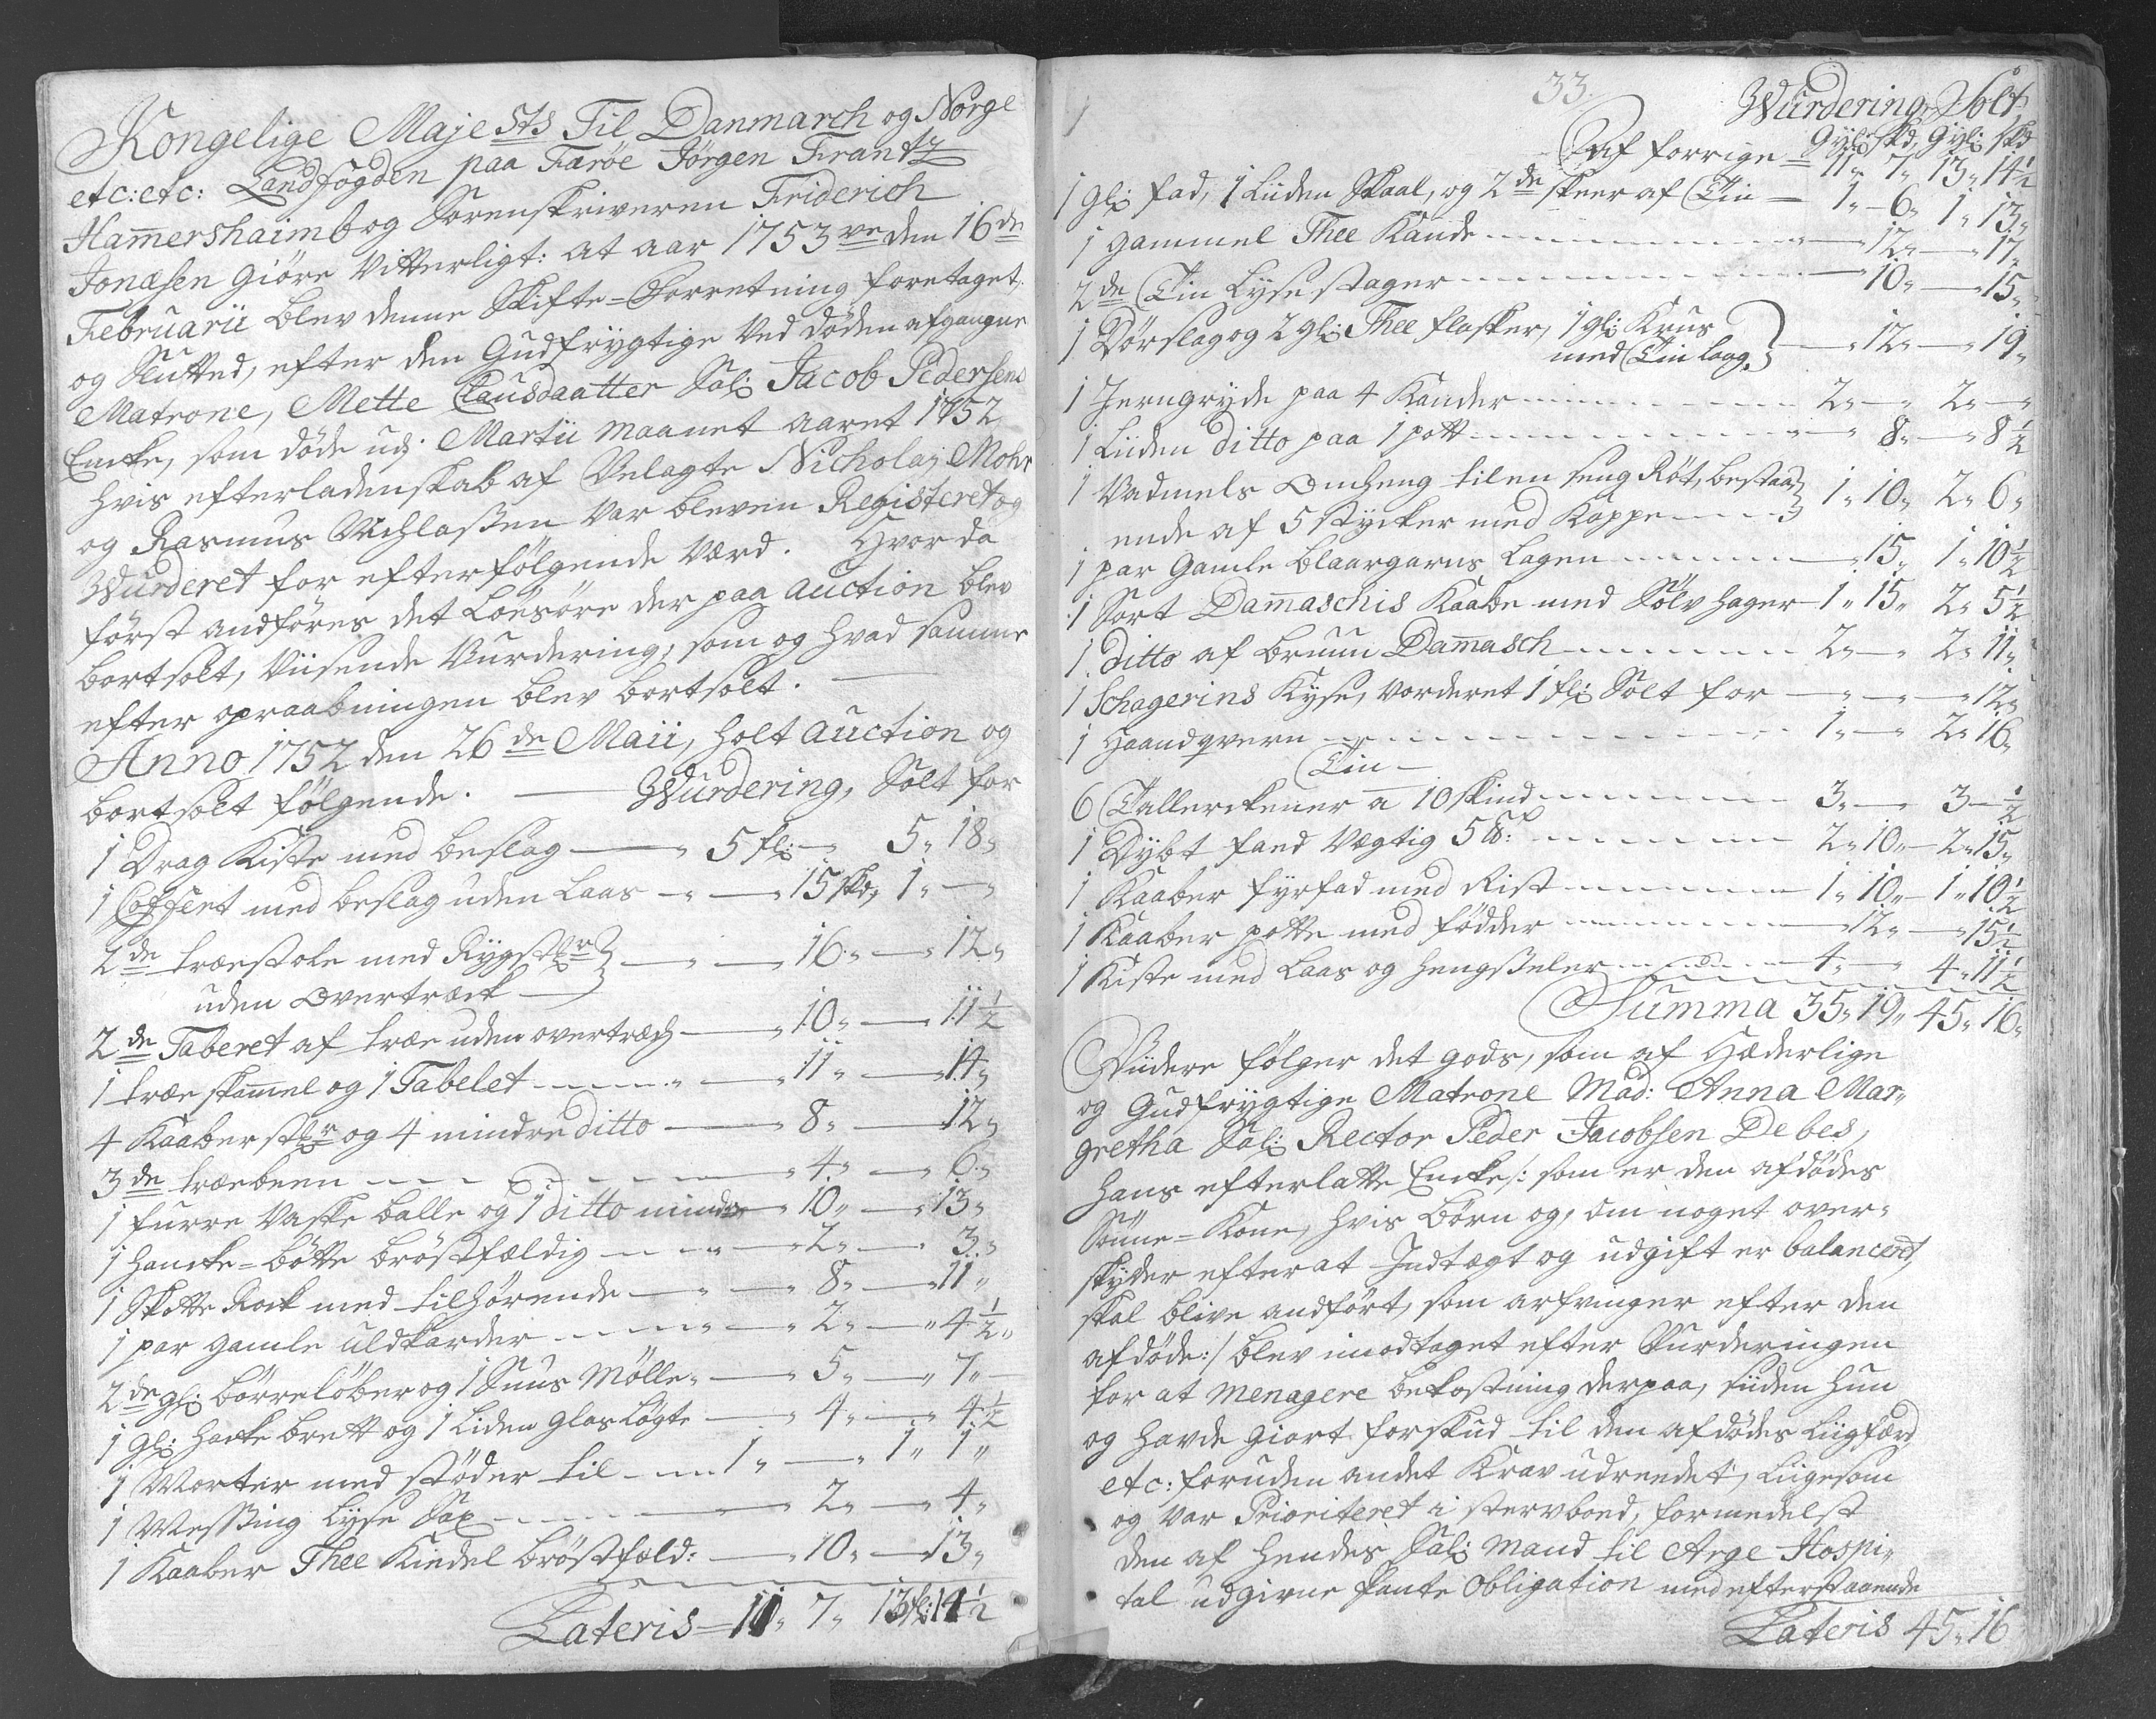 Kongelige Majests Til Danmarch og Norge
etc: etc: Landfogden paa Færöe Jörgen Frantz
Hammershaimb og Sorenskriveren Friderich
Jonæsen giöre Vitterligt: at aar 1753ve den 16de
Februarii blev denne Skifte=Forretning foretaget,
og Slutted, efter den Gudfrygtige Ved döden afgangne
Matrone, Mette Clausdaatter Sal: Jacob Pedersens
Encke, som döde udj Martii maanet aaret 1752
hvis efterladenskab af Velagte Nicholaj Mohr
og Rasmus Nichlaßen var bleven Registeret og
Wurderet for efterfölgende Værd. Hvor da
först andföres det Loësöre der paa auction blev
bortsolt, Viisende Vurdering, som og hvad samme
efter opraabningen blev bortsolt.
Anno 1752 den 26de Maii, holt auction og
bortsolt fölgende. Wurdering, Solt for
1 Drag Kiste med beslag 5 fl: 5„ 18„
1 Coffert med beslag uden Laas 15 skd, 1„ — „
2de træestole med Rygstkr
uden Overtræck 16„ — 12„
2de Taberet af træe uden overtræch 10„ — 11½
1 træe skamel og 1 Tabelet 11„ — 14„
4 Kaaber stkr og 4 mindre ditto 8„ — 12„
3de træebeen 4„ — 6„
1 furre Vaske balle og 1 ditto mindre 10„ — 13„
1 Hancke=bötte bröstfældig 2„ — 3„
1 Skotte Rock med tilhörende 8„ — 11„
1 par gamle uldkarder 2„ — 4½„
2de gl: börrelöber og 1 Snus Mölle 5„ — 7„
1 gl: Hacke brett og 1 Liden glas Lögte 4„ — 4½
1 Morter med stöder til 1„ — 1„ 1„
1 Messing Lyse Sax 2„ — 4„
1 Kaaber Thee Kiedel bröstfæld: 10„ — 13„
Lateris = 11„ 7„ 13 fl: 14½
33.
Wurdering, Solt,
Gyl: skd, Gyl: skd
Af forrige = 11„ 7„ 13„ 14½
1 gl: fad, 1 Liiden Skaal, og 2de skeer af Tin 1„ 6„ 1„ 13„
1 gammel Thee Kande 12„ — 17„
2de Tin Lyse stager 10„ — 15„
1 Dörslag og 2 gl: Thee flasker, 1 gl: Krus
med Tin laag, 12„ — 19„
1 Jerngryde paa 4 Kander 2„ — „ 2„ — „
1 Liiden ditto paa 1 pott 8„ — 8½
1 Vadmels Omheng til en seng Röt, bestaa
ende af 5 stycker med Kappe 1„ 10„ 2„ 6„
1 par Gamle blaargarns Lagen 15„ 1„ 10½
1 Sort Damaschis Kaabe med Sölv hager 1„ 15„ 2„ 5½
1 ditto af bruun Damasch 2„ — 2„ 11„
1 Schagerins Kyse, vorderet 1 fl: Solt for — „ — „ 12„
1 Haandqvern 1„ — 2„ 16„
Tin
6 Tallerckener a 10 skind 3„ — 3 — ½
1 Dybt fand vægtig 5 ℔: 2„ 10„ 2„ 15„
1 Kaaber fyrfad med Rist 1„ 10„ 1„ 10½
1 Kaaber potte med födder 12„ — 15½
1 Kiste med Laas og hengßeler 4„ — 4„ 11½
Summa 35„ 19„ 45„ 16„
Viidere fölger det gods, som af Hæderlige
og Gudfrygtige Matrone Mad: Anna Mar„
gretha Sal: Rector Peder Jacobsen Debes,
hans efterlatte Encke /: som er den afdödes
Sönne=Kone, hvis börn og, om noget over„
skyder efter at Indtægt og udgift er balanceret,
skal blive andfört, som arfvinger efter den
afdöde :/ blev imodtaget efter Vurderingen
for at menagere bekostning derpaa, siiden hun
og havde giort forskud til den afdödes Liigfærd
etc: foruden andet Krav udreedet, Liigesom
og var Prioriteret i sterboed, formedelst
den af hendes Sal: Mand til Arge Hospi„
tal udgivne Pante Obligation med efterstaaende
Lateris 45„ 16